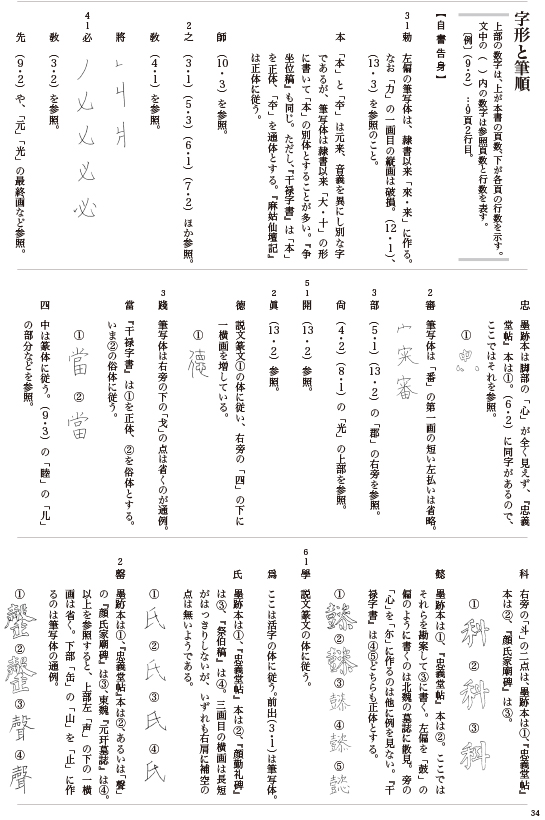 字形と筆順
上部の数字は、上が本書の頁数、下が各頁の行数を示す。
文中の（ ）内の数字は参照頁数と行数を表す。
〔例〕（9・2）…9頁2行目。
【自書告身】
3 1 勅 左偏の筆写体は、隷書以来「來・来」に作る。
なお「力」の一画目の縦画は破損。（12・1）、
（13・3）を参照のこと。
本 「本」と「夲」は元来、音義を異にし別な字
であるが、筆写体は隷書以来「大・十」の形
に書いて「本」の別体とすることが多い。『争
坐位稿』も同じ。ただし、『干禄字書』は「本」
を正体、「夲」を通体とする。『麻姑仙壇記』
は正体に従う。
師 （10・3）を参照。
2 之 （3・1）（5・3）（6・1）（7・2）ほか参照。
教 （4・1）を参照。
將
4 1 必
教 （3・2）を参照。
先 （9・2）や、「元」「光」の最終画など参照。
忠 墨跡本は脚部の「心」が全く見えず、『忠義
堂帖』本は①。（6・2）に同字があるので、
ここではそれを参照。
①
2 審 筆写体は「番」の第一画の短い左払いは省略。
3 部 （5・1）（13・2）の「郡」の右旁を参照。
尙 （4・2）（8・1）の「光」の上部を参照。
5 1 開 （13・2）参照。
2 眞 （13・2）参照。
德 説文篆文①の体に従い、右旁の「四」の下に
一横画を増している。
①
3 践 筆写体は右旁の下の「戈」の点は省くのが通例。
當 『干禄字書』は①を正体、②を俗体とする。
いま②の俗体に従う。
① ②
四 中は篆体に従う。（9・3）の「睦」の「儿」
の部分などを参照。
科 右旁の「斗」の二点は、墨跡本は①、『忠義堂帖』
本は②、『顔氏家廟碑』は③。
① ② ③
懿 墨跡本は①、『忠義堂帖』本は②。ここでは
それらを勘案して③に書く。左偏を「鼓」の
偏のように書くのは北魏の墓誌に散見。旁の
「心」を「尓」に作るのは他に例を見ない。『干
禄字書』は④⑤どちらも正体とする。
① ② ③ ④ ⑤
6 1 學 説文篆文の体に従う。
爲 ここは活字の体に従う。前出（3・1）は筆写体。
氏 墨跡本は①、『忠義堂帖』本は②、『顔勤礼碑』
は③、『祭伯稿』は④。三画目の横画は長短
がはっきりしないが、いずれも右肩に補空の
点は無いようである。
① ② ③ ④
2 罄 墨跡本は①、『忠義堂帖』本は②、あるいは「聲」
の『顔氏家廟碑』は③、東魏『元玕墓誌』は④。
以上を参照すると、上部左「声」の下の一横
画は省く。下部「缶」の「山」を「止」に作
るのは筆写体の通例。
① ② ③ ④
34